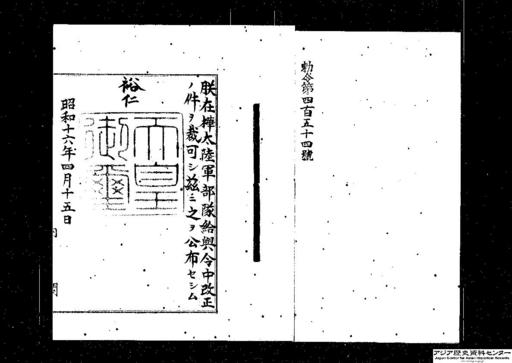 勅令第四百五十四號
朕在樺太陸軍部隊給與令中改正
ノ件ヲ裁可シ茲ニ之ヲ公布セシム
裕仁
天皇
御璽
昭和十六年四月十五日
アジア歴史資料センター
Japan Center for Asian Historical Records